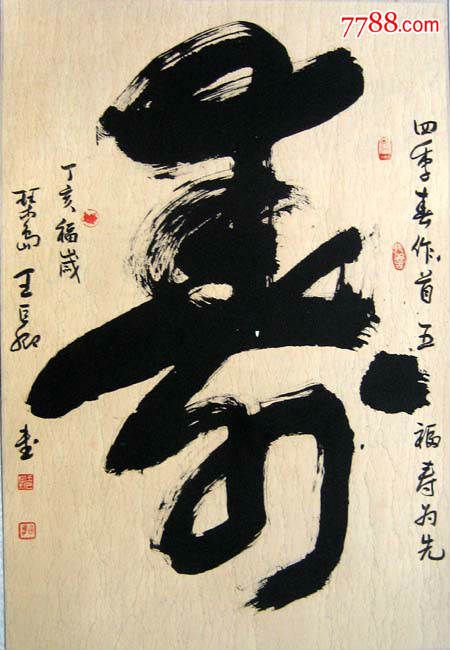 7788.com
寿
四季春作首五福寿为先
丁亥福岁
琴岛王卿书